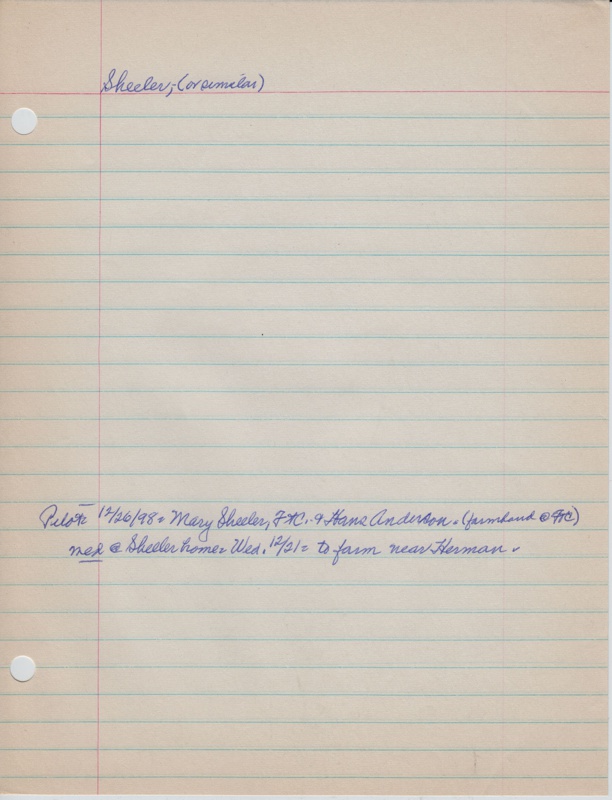 Sheeler,-(or similar)
Pilot= 12/26/98= Mary Sheeler, Ft C. & Hans Anderson. (farmhand @ FtC)
med @ Sheeler home= Wed. 12/21= to farm near Herman.